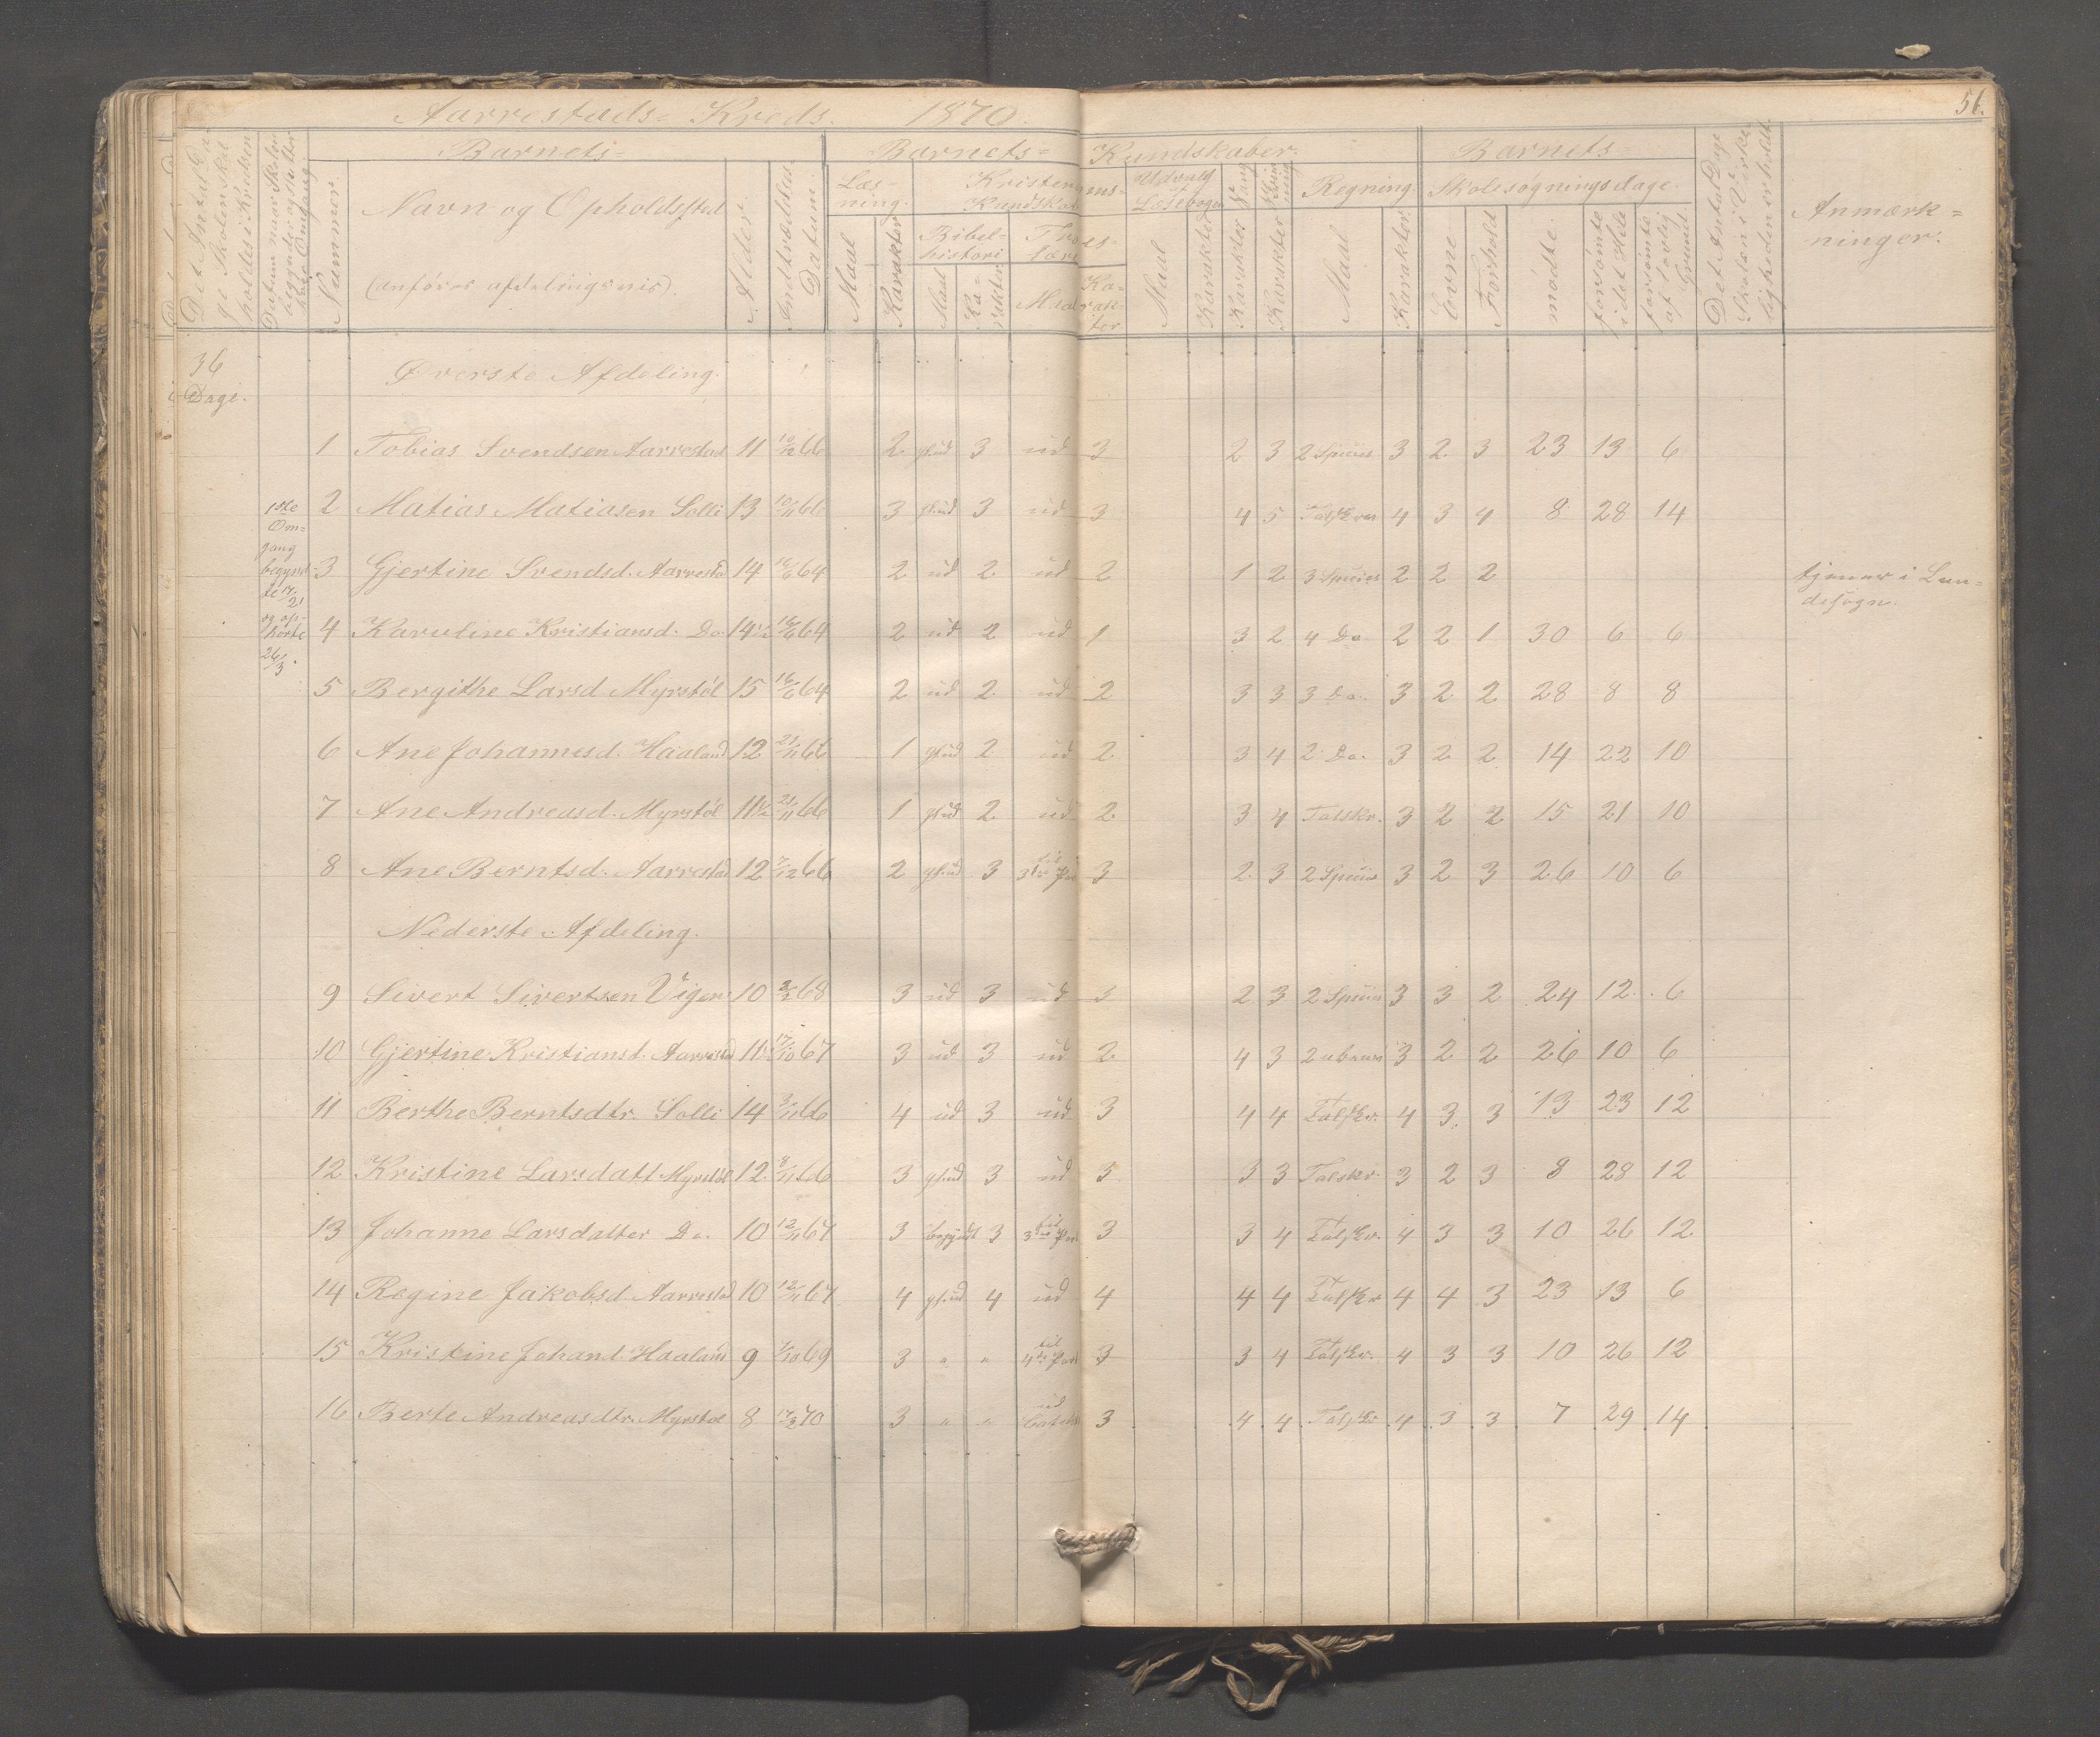 Aarrestads- Kreds. 1870.
56.
Det Antal Da-
ge Skolen skal
holdes i Kredsen
Datum naar Skolen
begynder og slutter
hver Omgang.
Barnets-
Nummer.
Navn og Opholdssted
(anføres afdelingsvis).
Alder.
Indtrædelses
Datum.
Barnets- Kundskaber.
Læs-
ning.
Maal
Karakter
Kristendoms-
Kundskab
Bibel-
historie
Maal
Ka-
rakter
Troes-
lære
Maal
Ka-
rak-
ter.
Udvalg
Læsebogen
Maal
Karakter
Sang
Karakter
Skriv-
ning
Karakter
Regning
Maal
Karakter
Barnets
Skolesøgningsdage.
Evne
Forhold
mødte.
forsømte
i det Hele
forsømte
af lovlig
Grund.
Det Antal Dage
Skolen i Virke-
ligheden er holdt.
Anmærk-
ninger.
36
Dage.
Øverste Afdeling.
1 Tobias Svendsen Aarrestad 11 10/12 66 2 gl.ud 3 ud 3 2 3 2 Speties 3 2 3 23 13 6
1ste
Om-
gang
begynd-
te 17/2
og op-
hørte
26/3.
2 Matias Matiasen Solli 13 10/11 66 3 gl.ud 3 ud 3 4 5 Talskr. 4 3 4 8 28 14
3 Gjertine Svendsd. Aarresta 14 16/6 64 2 ud 2 ud 2 1 2 3 Speties 2 2 2 tjener i Lun-
desogn.
4 Karoline Kristiansd. Do 14 1/2 16/6 64 2 ud 2 ud 1 3 2 4 Do 2 2 1 30 6 6
5 Bergithe Larsd Myrstøl 15 16/6 64 2 ud 2 ud 2 3 3 3 Do. 3 2 2 28 8 8
6 Ane Johannesd. Haaland 12 21/11 66 1 gl.ud 2 ud 2 3 4 2 Do. 3 2 2 14 22 10
7 Ane Andreasd. Myrstøl 11 1/2 21/11 66 1 gl.ud 2 ud 2 3 4 Talskr. 3 2 2 15 21 10
8 Ane Berntsd. Aarrestad 12 7/12 66 2 gl.ud 3 til 3die Part 3 2 3 2 Speties 3 2 3 26 10 6
Nederste Afdeling.
9 Sivert Sivertsen Vigen 10 3/2 68 3 ud 3 ud 3 2 3 2 Speties 3 3 2 24 12 6
10 Gjertine Kristiansd. Aarrestad 11 17/10 67 3 ud 3 ud 2 4 3 2 ubenævn 3 2 2 26 10 6
11 Berthe Berntsdtr. Solli 14 3/11 66 4 ud 3 ud 3 4 4 Talskr. 4 3 3 13 23 12
12 Kristine Larsdatt Myrstøl 12 8/11 66 3 gl.ud 3 ud 3 3 3 Talskr. 3 2 3 8 28 12
13 Johanne Larsdatter Do. 10 12/11 67 3 begyndt 3 til 3die Part 3 3 4 Talskr. 4 3 3 10 26 12
14 Regine Jakobsd. Aarrestad 10 12/11 67 4 gl.ud 4 ud 4 4 4 Talskr 4 4 3 23 13 6
15 Kristine Johand. Haaland 9 7/10 69 3 " " til 4de Part 3 3 4 Talskr. 4 3 3 10 26 12
16 Berte Andreasdtr. Myrstøl 8 17/3 70 3 " " ud 3 4 4 Talskr 4 3 3 7 29 14